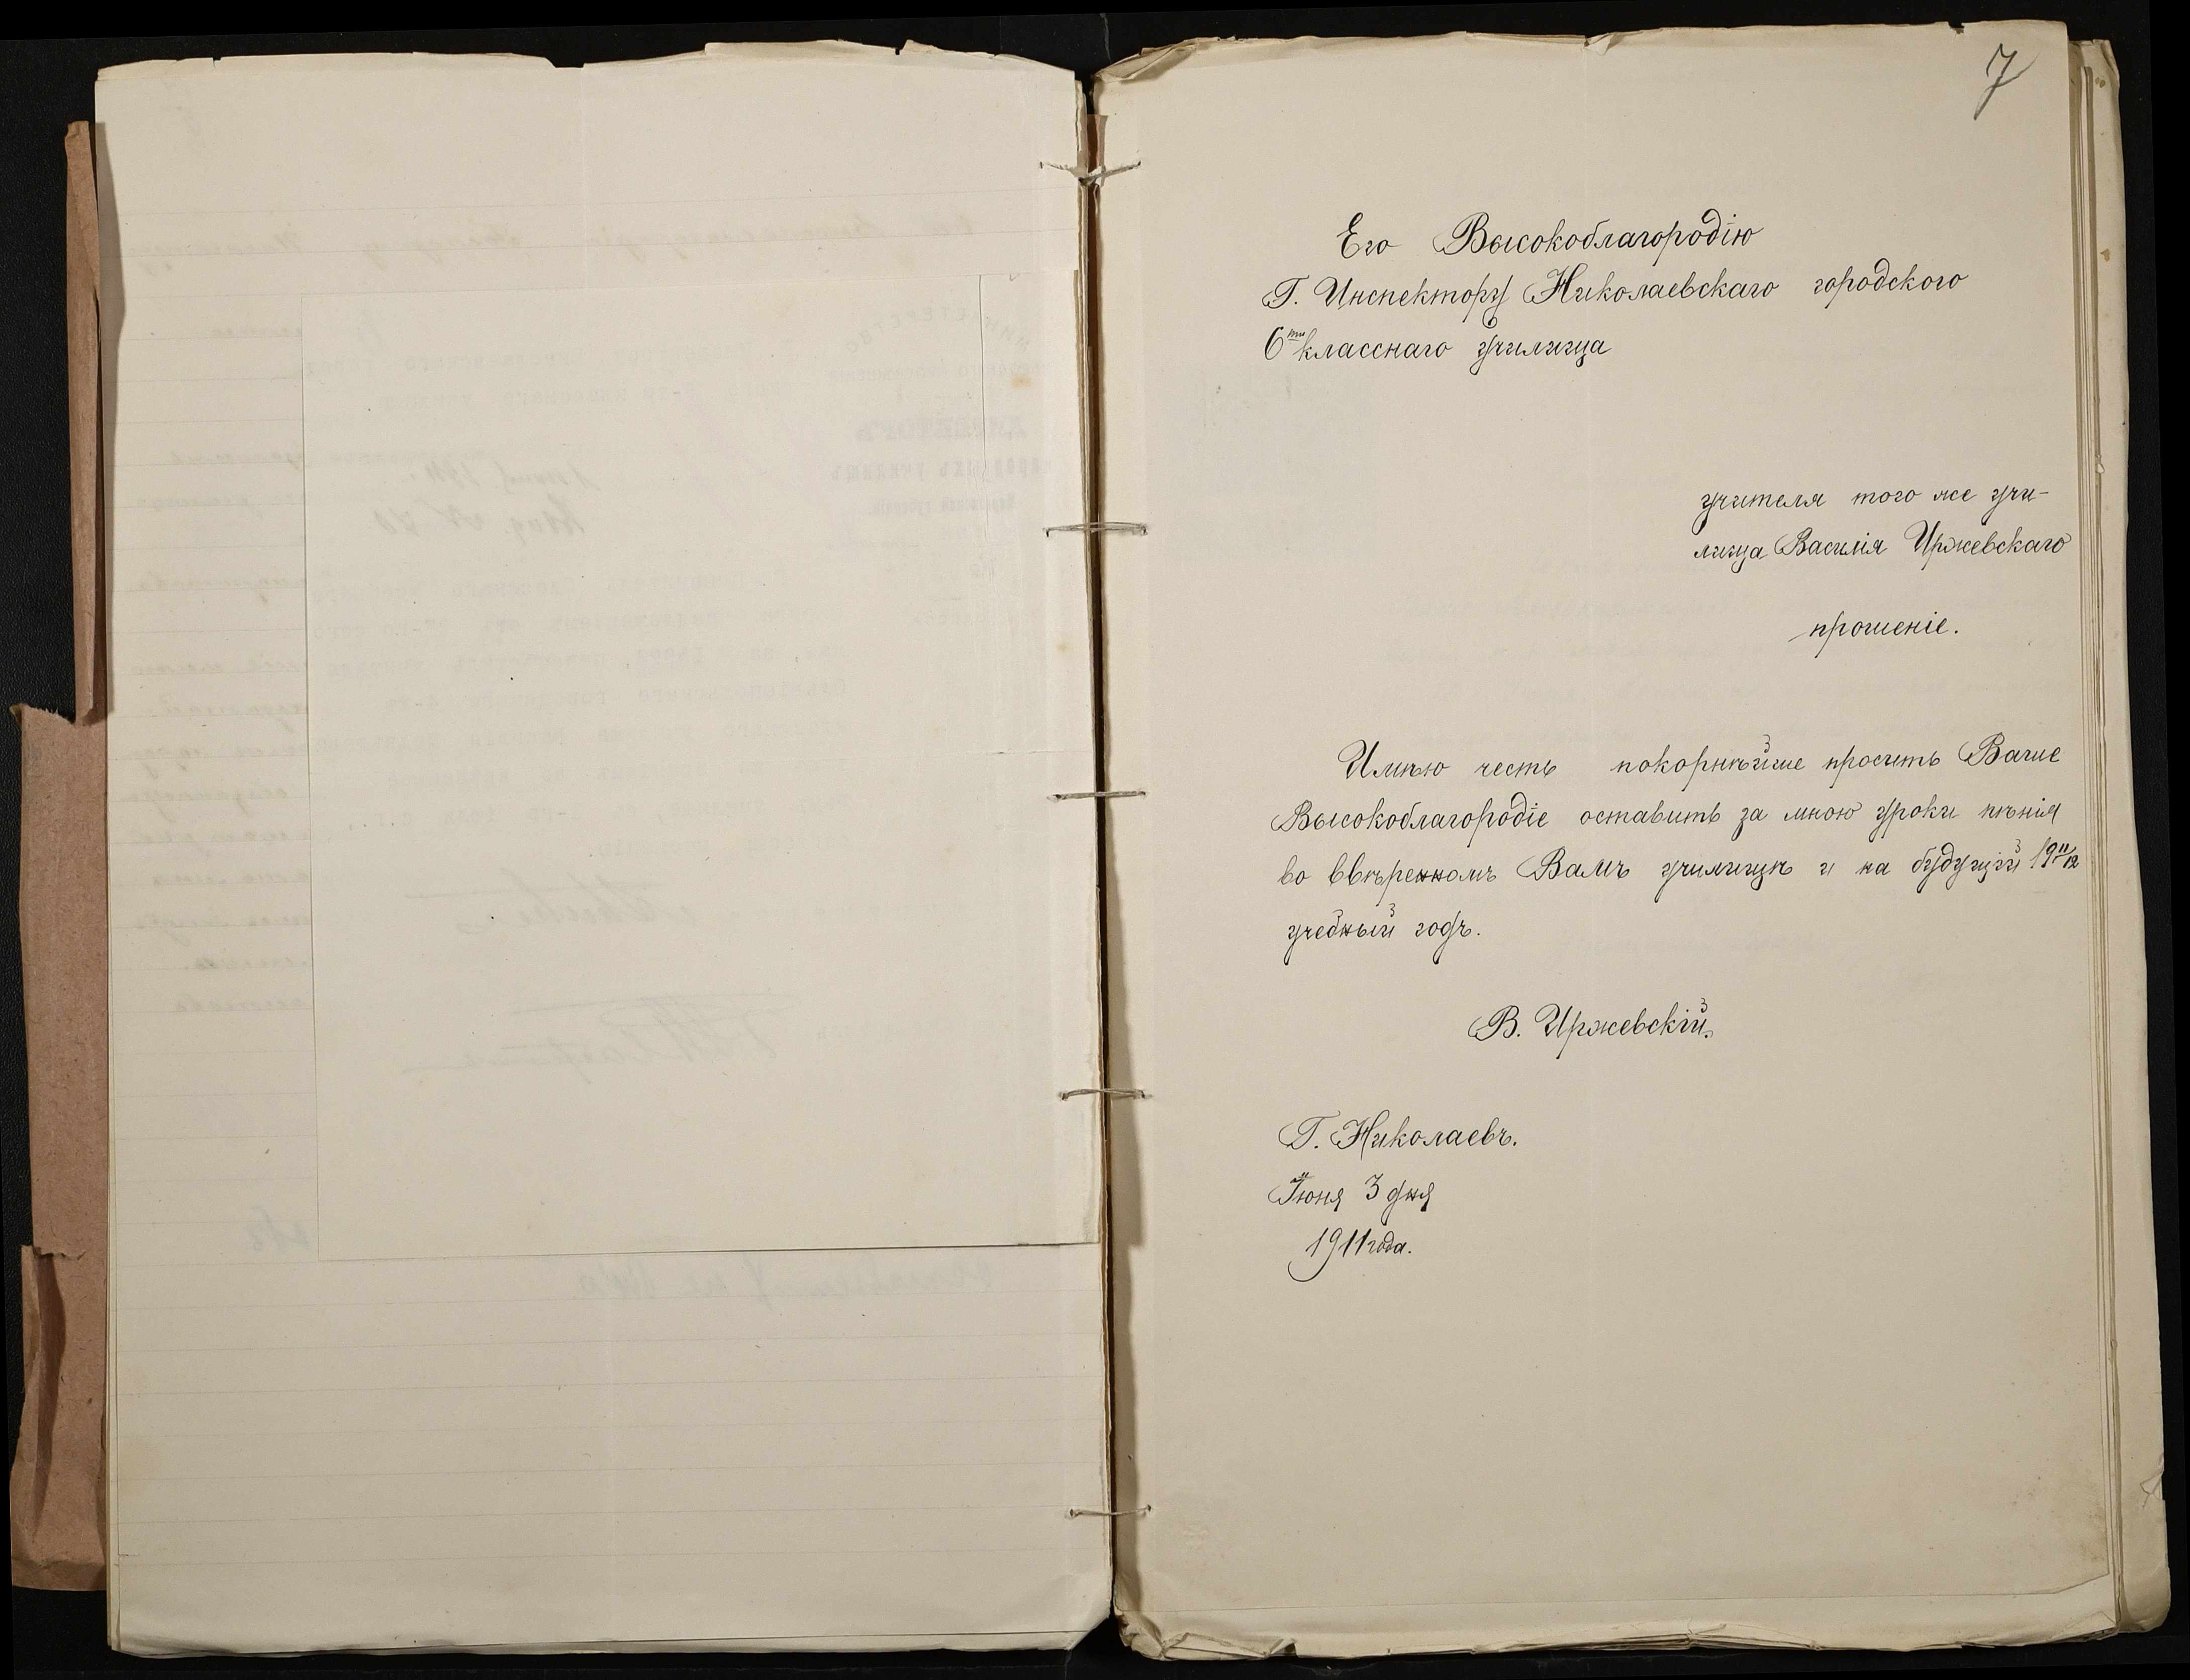 7
Его Высокоблагородію
Г. Инспектору Николаевскаго городского
6ти класснаго училища
учителя того же учи-
лища Василія Иржевскаго
прошеніе.
Имѣю честь покорнѣйше просить Ваше
Высокоблагородіе оставить за мною уроки пѣнія
во ввѣренномъ Вамъ училищѣ и на будущій 1911/12
учебный годъ.
В. Иржевскій.
Г. Николаевъ.
Іюня 3 дня
1911 года.